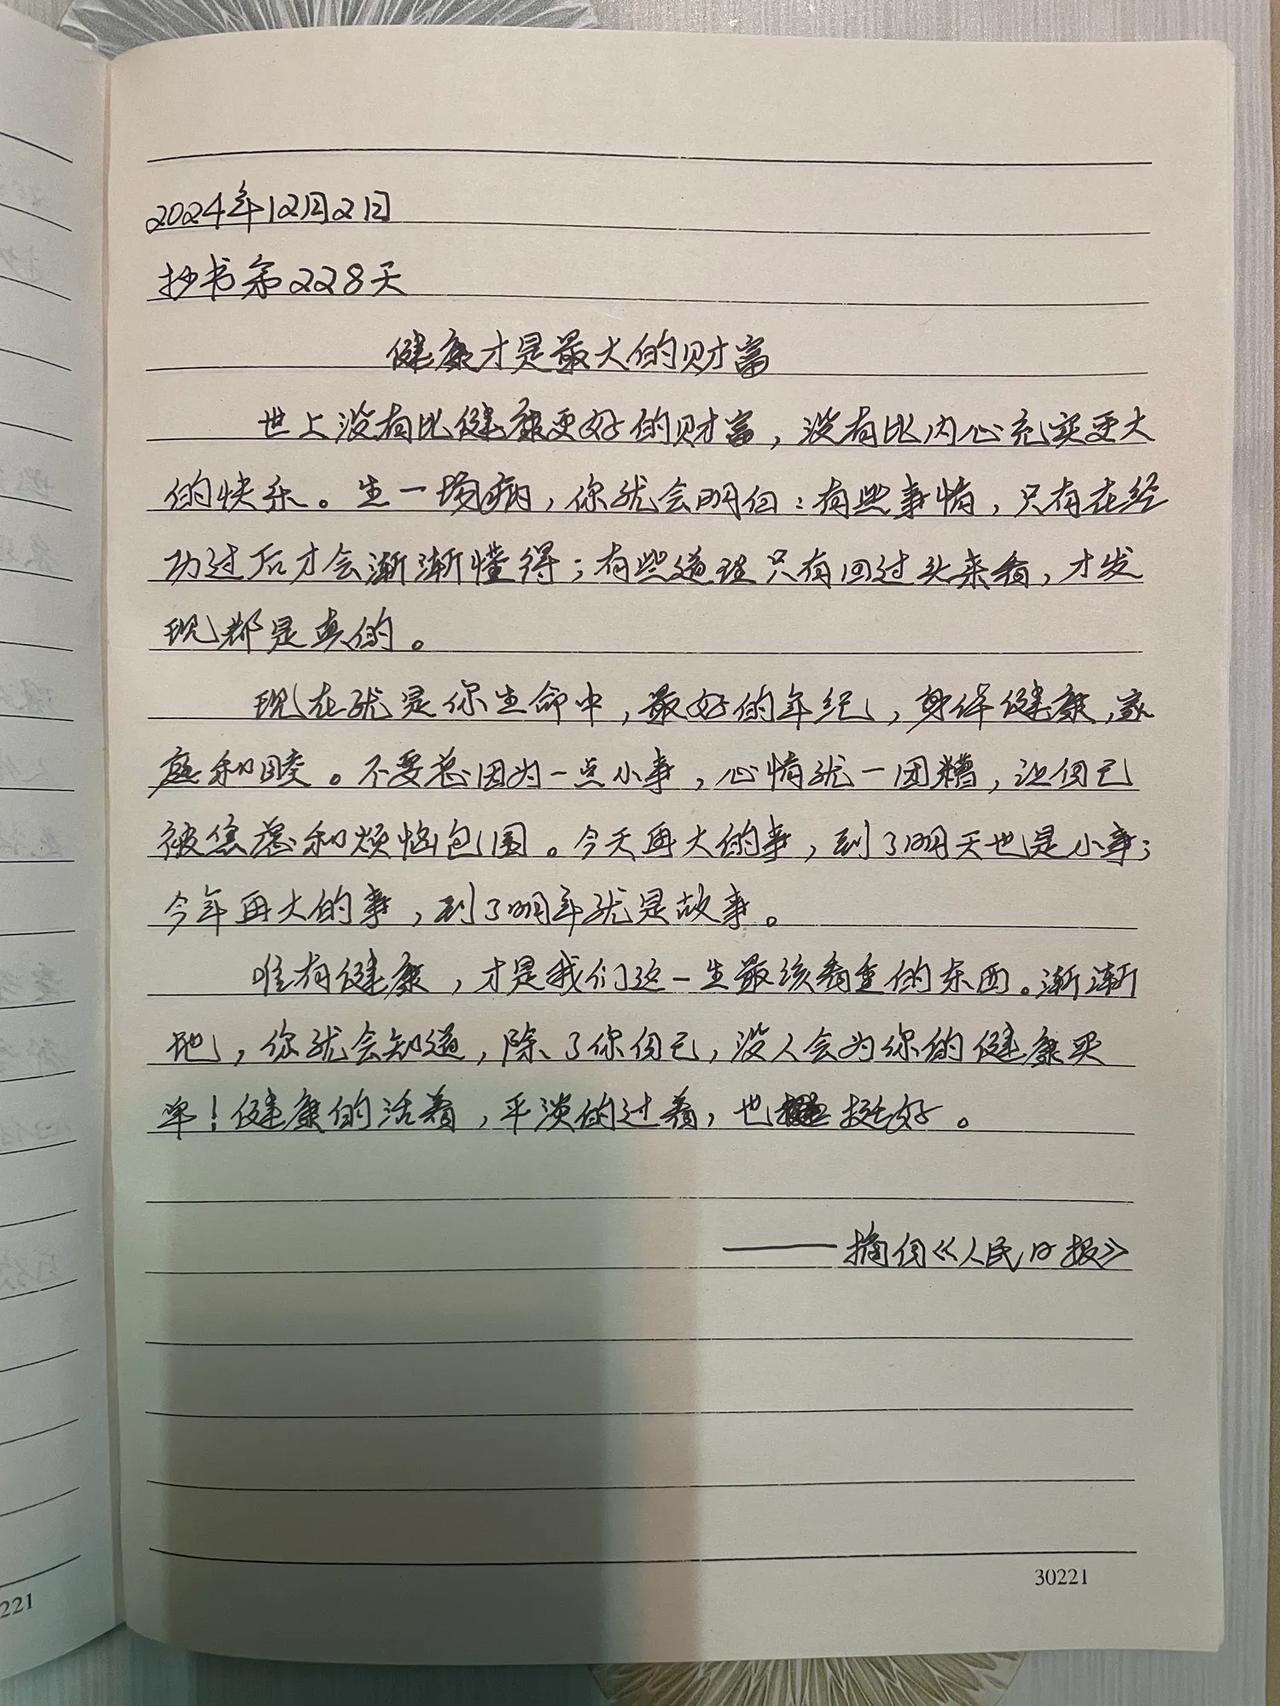 2024年12月2日
抄书第228天
健康才是最大的财富
世上没有比健康更好的财富，没有比内心充实更大
的快乐。生一场病，你就会明白：有些事情，只有在经
功过后才会渐渐懂得；有些道理只有回过头来看，才发
现都是真的。
现在就是你生命中，最好的年纪，身体健康，家
庭和睦。不要总因为一点小事，心情就一团糟，让自己
被焦虑和烦恼包围。今天再大的事，到了明天也是小事；
今年再大的事，到了明年就是故事。
唯有健康，才是我们这一生最该看重的东西。渐渐
地，你就会知道，除了你自己，没人会为你的健康买
单！健康的活着，平淡的过着，也挺好。
——摘自《人民日报》
30221
221